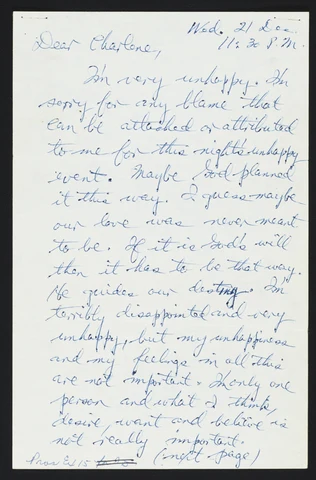 Wed. 21 Dec.
11:30 P.M.
Dear Charlene,
I'm very unhappy. I'm
sorry for any blame that
can be attached or attributed
to me for this night's unhappy
event. Maybe God planned
it this way. I guess maybe
our love was never meant
to be. If it is God's will
then it has to be that way.
He guides our destiny. I'm
terribly disappointed and very
unhappy, but my unhappiness
and my feelings in all this
are not important. I only one
person and what I think,
desire, want and believe is
not really important.
(next page)